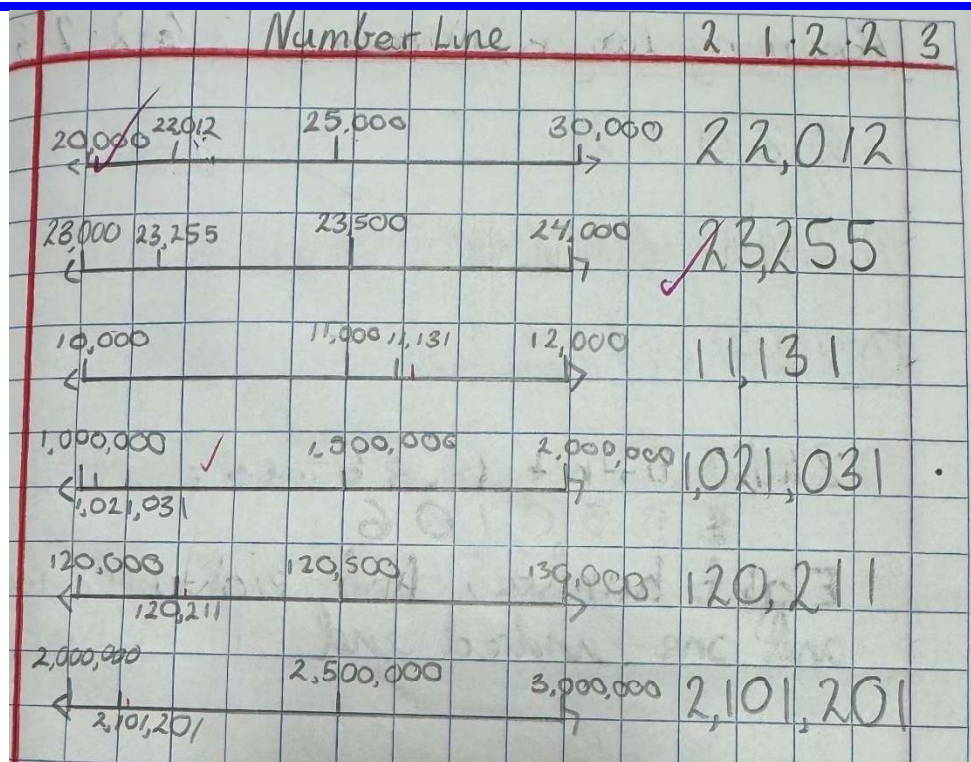 Number Line 2.1.2.2 3
20,000 22,012 25,000 30,000 22,012
23,000 23,255 23,500 24,000 23,255
10,000 11,000 11,131 12,000 11,131
1,000,000 2,000,000 1,021,031
1,021,031
120,000 120,500 130,000 120,211
120,211
2,000,000 2,500,000 3,000,000 2,101,201
2,101,201